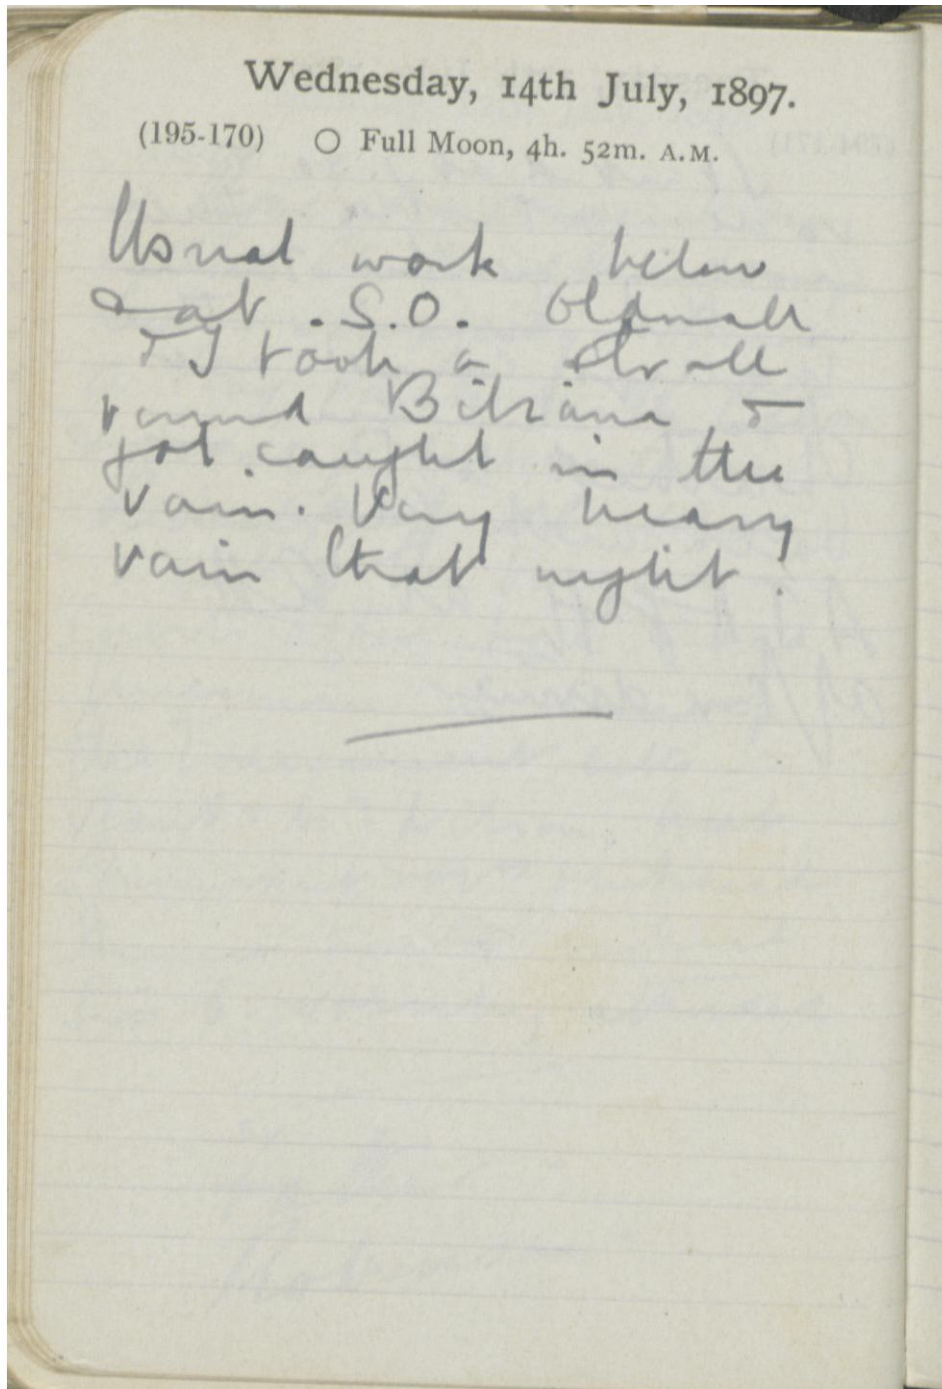 Wednesday, 14th July, 1897.
(195-170) ○ Full Moon, 4h. 52m. A.M.
Usual work below
& at . S.O. Oldnall
& I took a stroll
round Bibiana &
got caught in the
rain. Very heavy
rain that night.